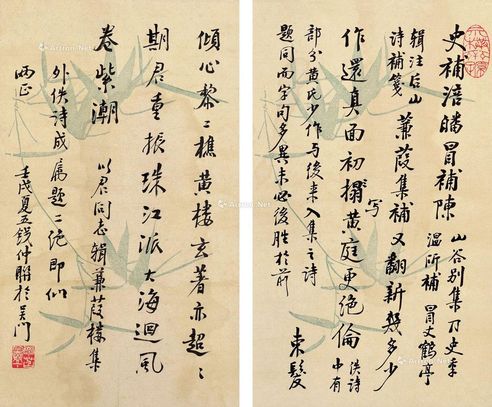 史補涪皤冒補陳 山谷別集乃史季
温所補 冒丈鶴亭
辑注后山
詩補箋 蒹葭集補又翻新幾多少
作還真面初搨黃庭更絕倫 佚詩
中有
写
部分黄氏少作与後来入集之诗
题同而字句多異未必後勝於前 束髮
傾心黎二樵黄樓玄著亦超〻
期君重振珠江派大海迴風
卷紫潮 以君同志辑蒹葭樓集
外佚诗成属题二絕即似
两正 壬戌夏五錢仲聯於吴門